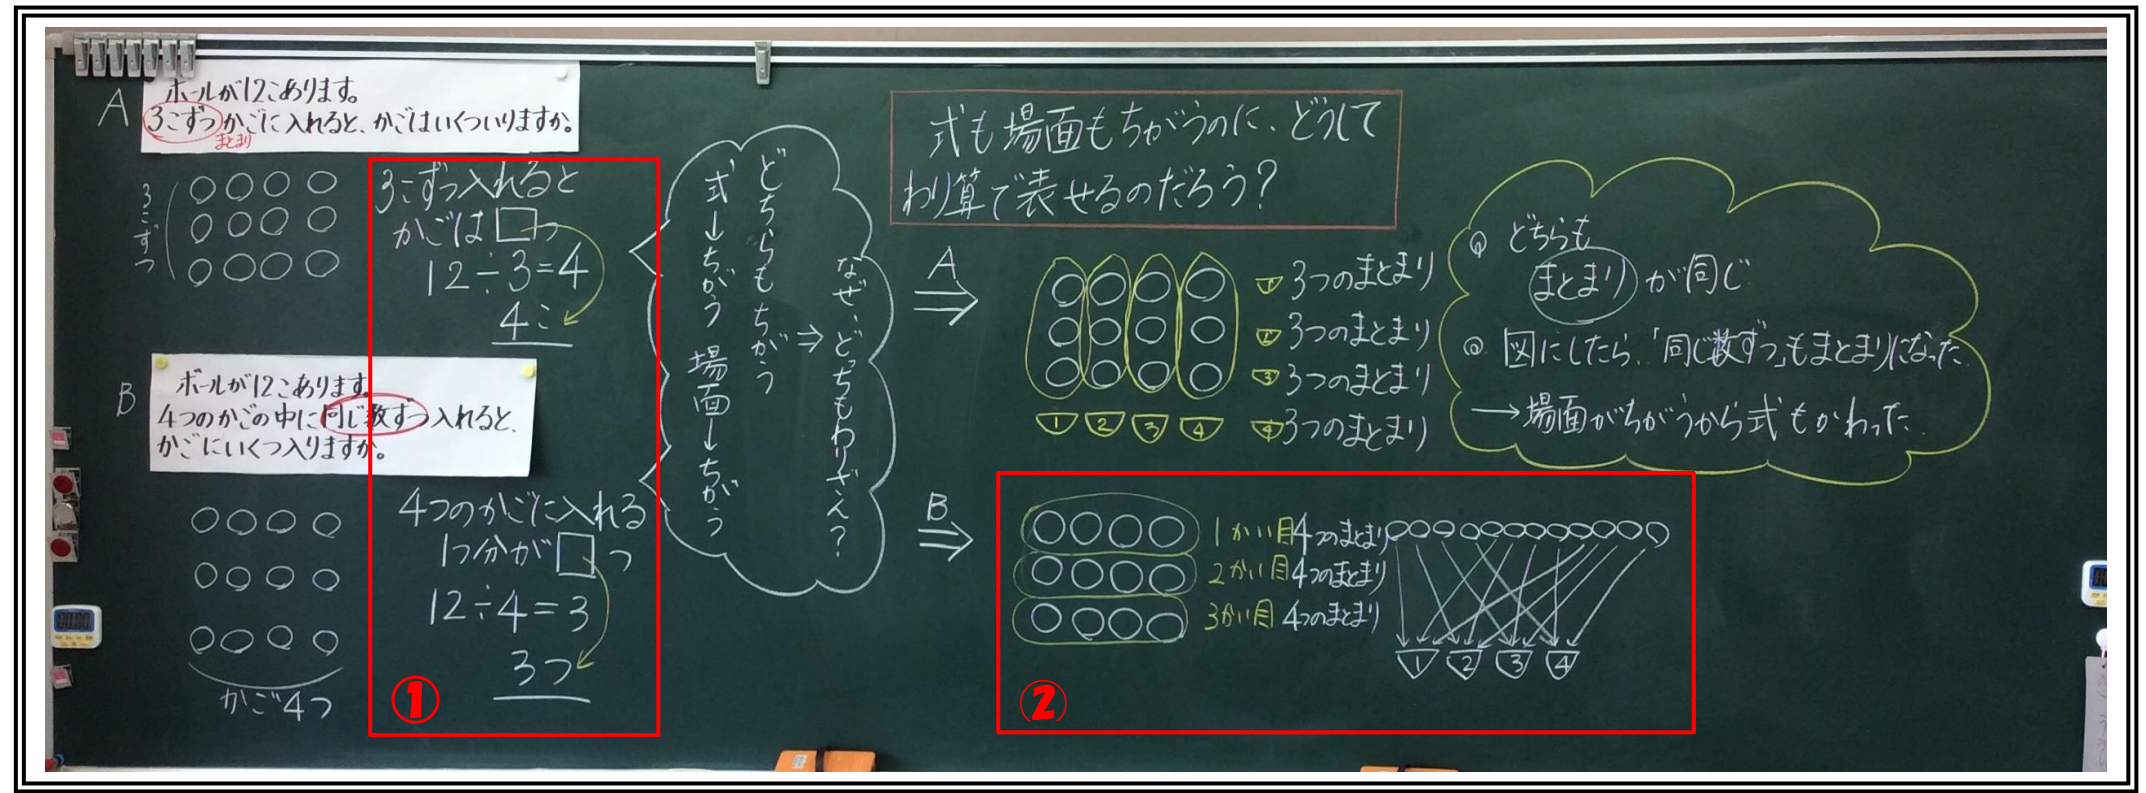 A
ボールが12こあります。
3こずつかごに入れると、かごはいくついりますか。
まとまり
3こずつ
3こずつ入れると
かごは□つ
12÷3=4
4こ
B
ボールが12こあります。
4つのかごの中に同じ数ずつ入れると、
かごにいくつ入りますか。
かご4つ
4つのかごに入れる
1つ分が□つ
12÷4=3
3つ
①
どちらもちがう
式→ちがう 場面→ちがう
⇒なぜ、どっちもわりざん?
式も場面もちがうのに、どうして
わり算で表せるのだろう?
A
⇒
1 3つのまとまり
2 3つのまとまり
3 3つのまとまり
4 3つのまとまり
1 2 3 4
どちらも
まとまりが同じ
図にしたら、「同じ数ずつ」もまとまりになった
→場面がちがうから式もかわった
B
⇒
1かい目4つのまとまり
2かい目4つのまとまり
3かい目4つのまとまり
1 2 3 4
②
00:00